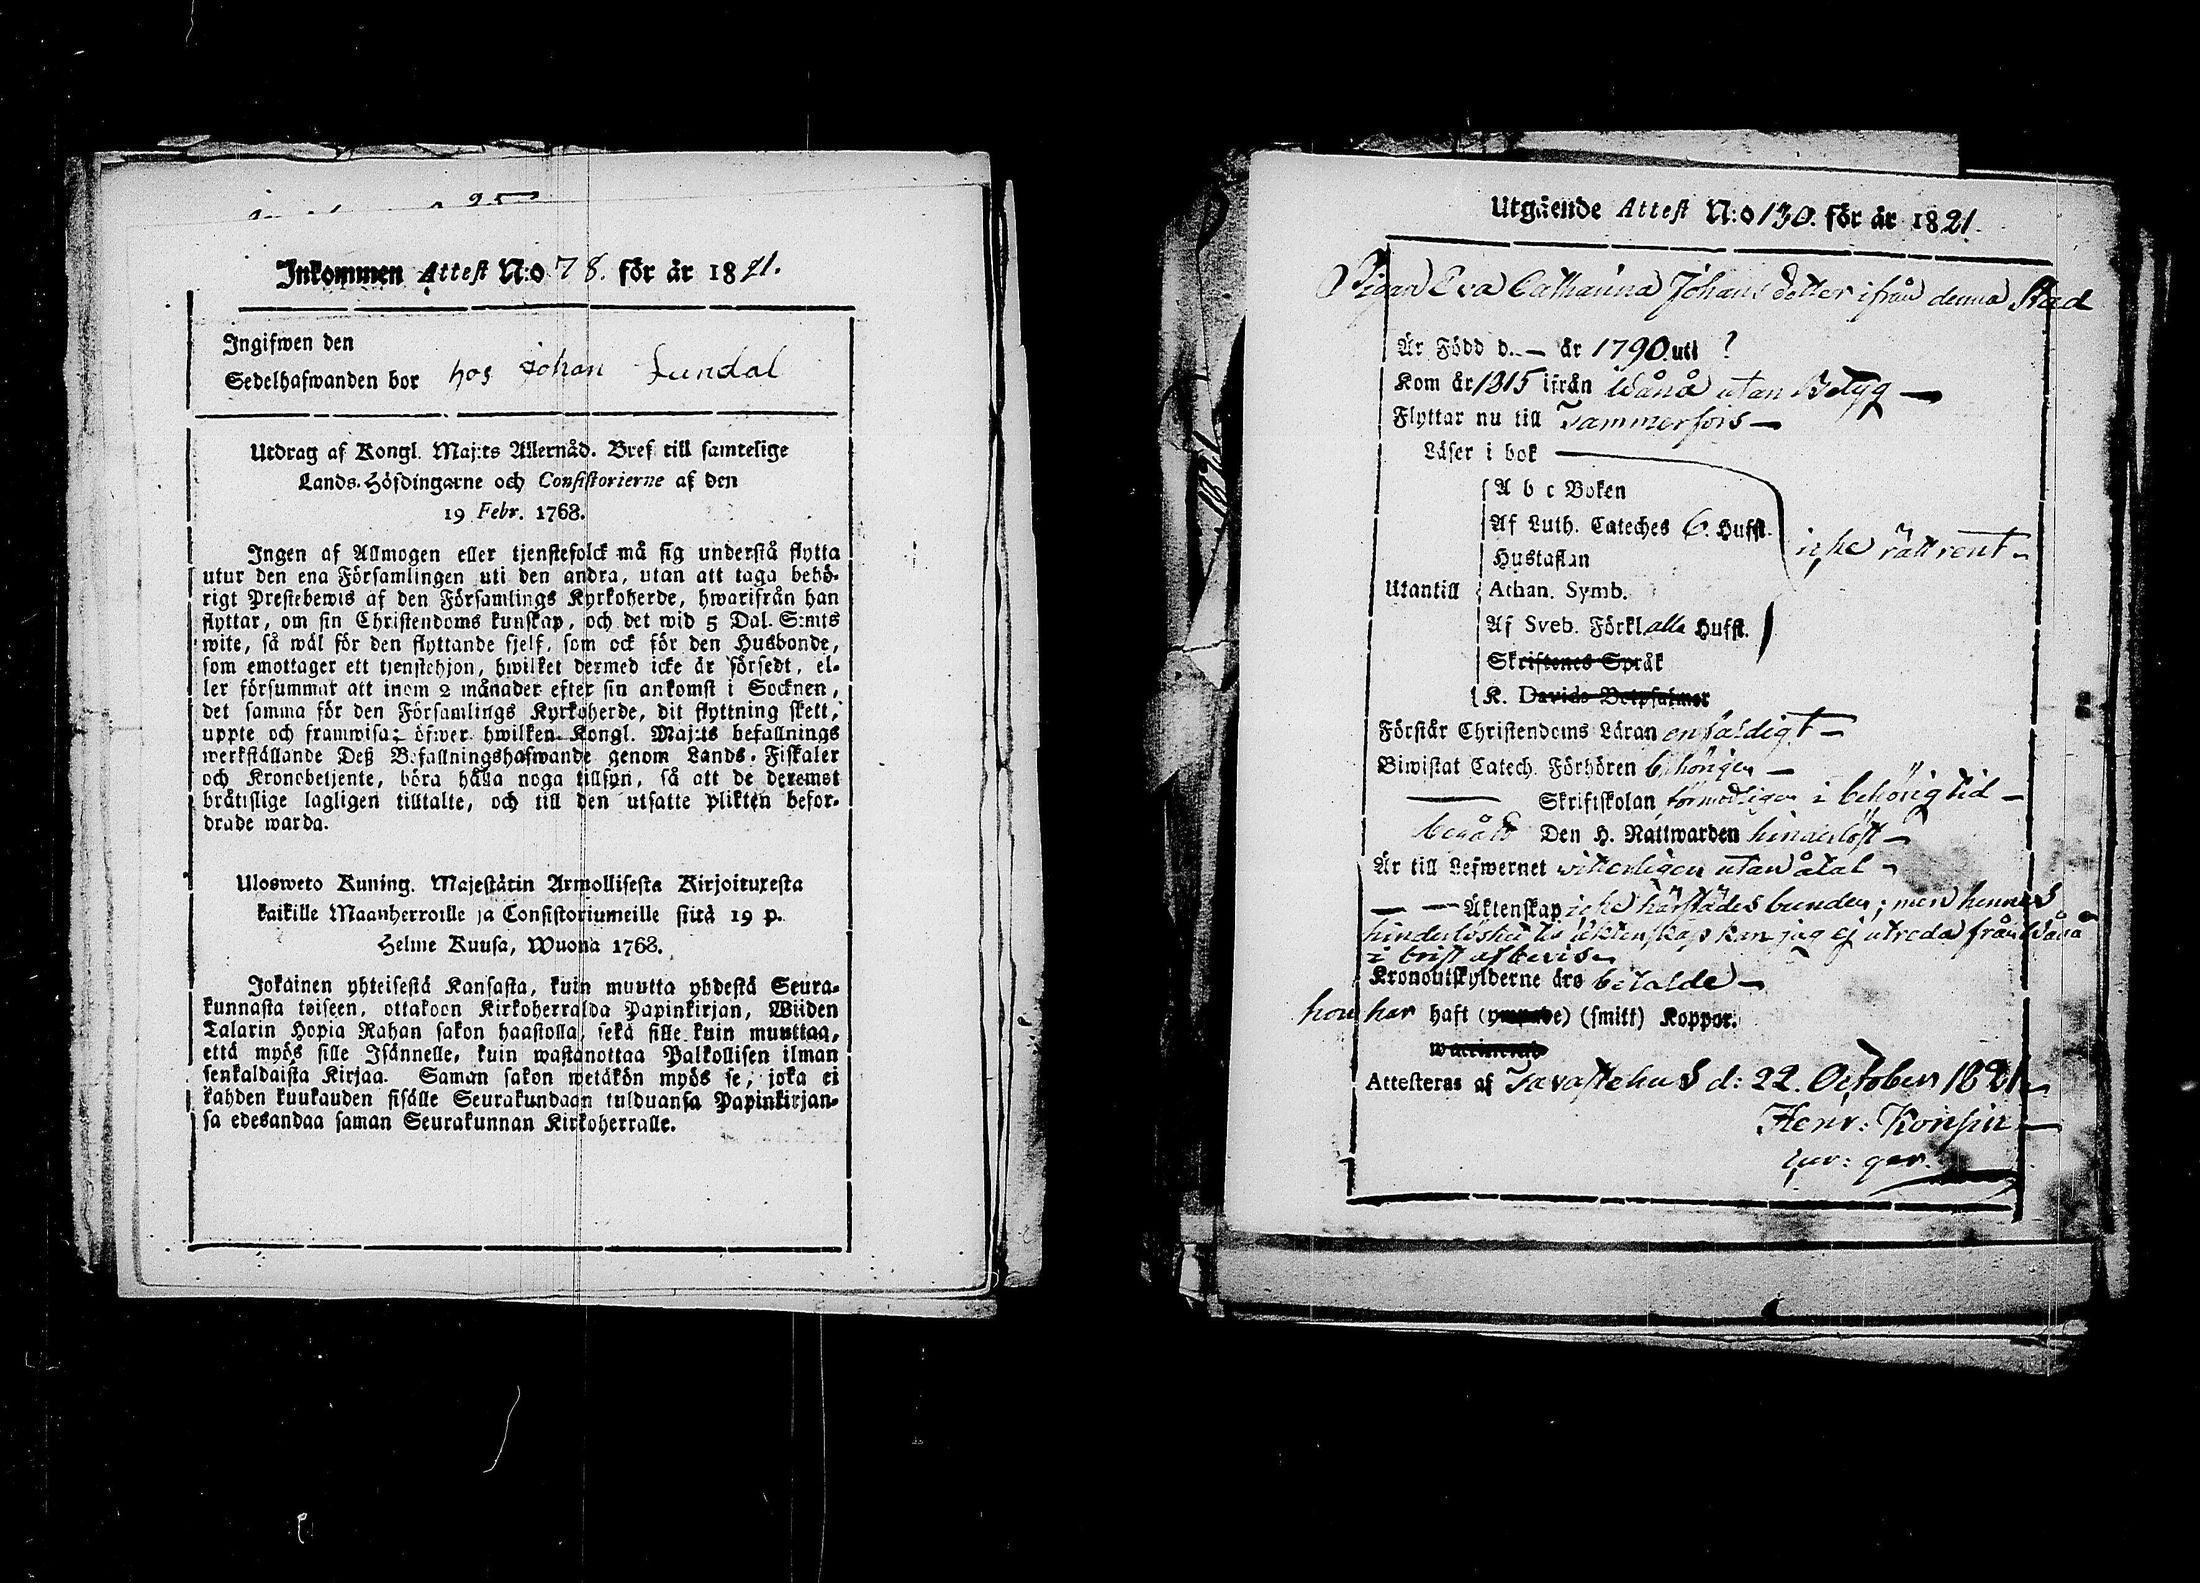 Inkommen Attest N:o 78. för år 1821.
Ingifwen den
Sedelhafwanden bor hos Johan Lundal
Utdrag af Kongl. Maj:ts Allernåd. Bref till samtelige
Lands-Höfdingarne och Consistorierne af den
19 Febr. 1768.
Ingen af Allmogen eller tjenstefolck må sig understå flytta
utur den ena Församlingen uti den andra, utan att taga behö-
rigt Prestebewis af den Församlings Kyrkoherde, hwarifrån han
flyttar, om sin Christendoms kunskap, och det wid 5 Dal. S:mts
wite, så wäl för den flyttande sjelf, som ock för den Husbonde,
som emottager ett tjenstehjon, hwilket dermed icke är försedt, el-
ler försummar att inom 2 månader efter sin ankomst i Socknen,
det samma för den Församlings Kyrkoherde, dit flyttning skett,
uppte och framwisa; öfwer hwilken Kongl. Maj:ts befallnings
werkställande Deß Befallningshafwande genom Lands-Fiskaler
och Kronobetjente, böra hålla noga tillsyn, så att de deremot
bråttslige lagligen tilltalte, och till den utsatte plikten befor-
drade warda.
Ulosweto Kuning. Majestätin Armollisesta Kirjoituxesta
kaikille Maanherroille ja Consistoriumeille siitä 19 p.
Helme Kuusa, Wuona 1768.
Jokainen yhteisestä Kansasta, kuin muutta yhdestä Seura-
kunnasta toiseen, ottakoon Kirkoherralda Papinkirjan, Wiiden
Talarin Hopia Rahan sakon haastolla, sekä sille kuin muuttaa,
että myös sille Isännelle, kuin wastanottaa Palkollisen ilman
senkaldaista Kirjaa. Saman sakon wetäkön myös se, joka ei
kahden kuukauden sisälle Seurakundaan tulduansa Papinkirjan-
sa edesandaa saman Seurakunnan Kirkoherralle.
Utgående Attest N:o 130. för år 1821.
Pigan Eva Catharina Johansdotter ifrån denna Stad
Är Född d. — år 1790. uti ?
Kom år 1815 ifrån Wånå utan Betyg —
Flyttar nu till Tammerfors —
Läser i bok
A b c Boken
Af Luth. Cateches 6. Hufst.
Hustaflan
icke rätt rent
Utantill Athan. Symb.
Af Sveb. Förkl. alla Hufst.
Skriftenes Språk
K. Davids Botpsalmer
Förstår Christendoms Läran enfaldigt —
Biwistat Catech. Förhören behörigen —
— Skriftskolan förmodligen i behörig tid —
begådt Den H. Nattwarden hinderlöst —
Är till Lefwernet vitterligen utan åtal
— — Äktenskap icke härstädes bunden; men hennes
hinderlöshet til äktenskap kan jag ej utreda från Wånå
i brist af bevis
Kronoutskylderne äro betalde —
hon har haft (ympade) (smitt) Koppor.
Attesteras af Tavastehus d: 22. October 1821
Henr: